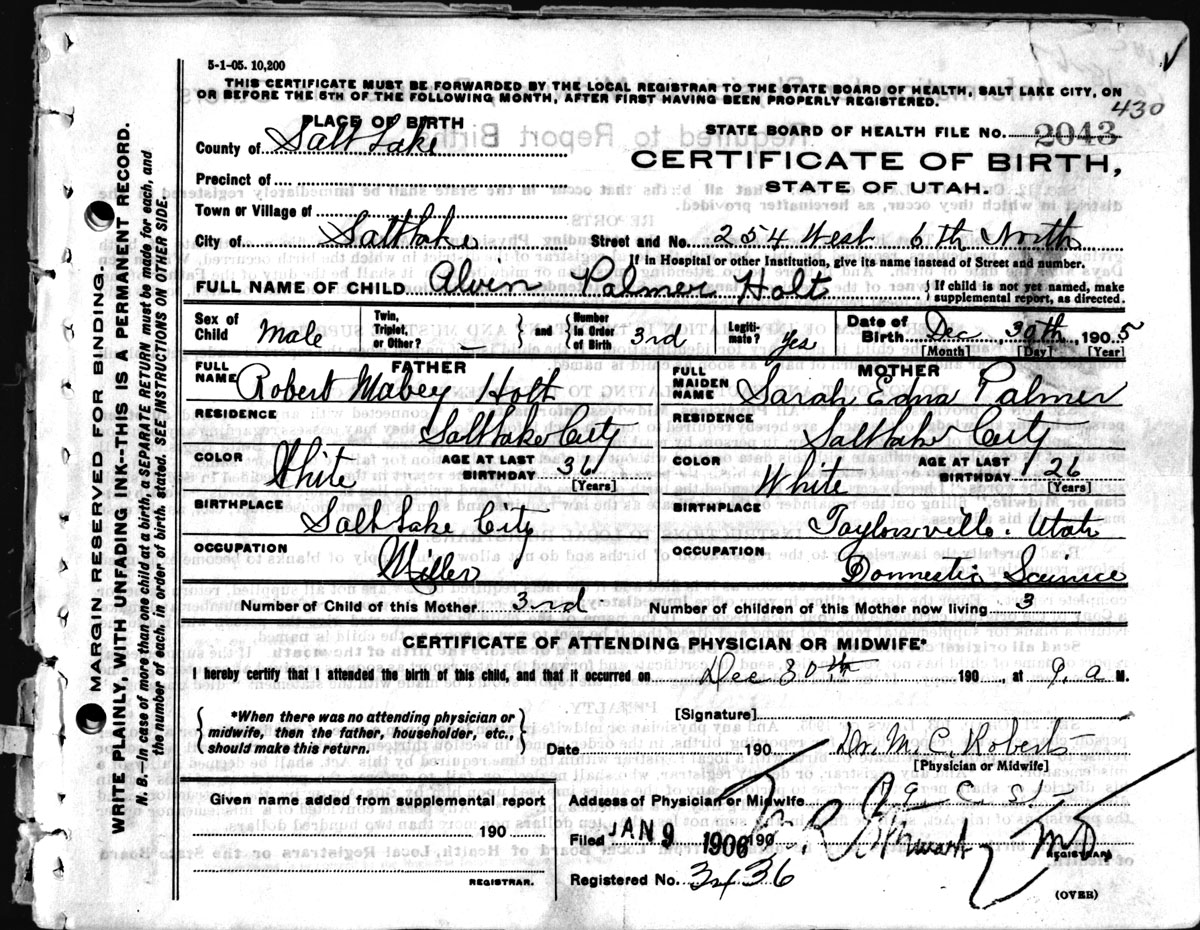 5-1-05. 10,200
THIS CERTIFICATE MUST BE FORWARDED BY THE LOCAL REGISTRAR TO THE STATE BOARD OF HEALTH, SALT LAKE CITY, ON
OR BEFORE THE 5TH OF THE FOLLOWING MONTH, AFTER FIRST HAVING BEEN PROPERLY REGISTERED.
430
PLACE OF BIRTH
STATE BOARD OF HEALTH FILE NO. 2043
County of Salt Lake
CERTIFICATE OF BIRTH,
Precinct of
STATE OF UTAH.
Town or Village of
City of Salt Lake Street and No. 254 West 6th North
If in Hospital or other Institution, give its name instead of Street and number.
FULL NAME OF CHILD Alvin Palmer Holt { If child is not yet named, make
supplemental report, as directed.
Sex of Child Male Twin, Triplet, or Other? — } and { Number in Order of Birth 3rd Legiti- mate? Yes Date of Birth Dec. 30th, 1905
[Month] [Day] [Year]
FATHER MOTHER
FULL NAME Robert Mabey Holt FULL MAIDEN NAME Sarah Edna Palmer
RESIDENCE Salt Lake City RESIDENCE Salt Lake City
COLOR White AGE AT LAST BIRTHDAY 36 [Years] COLOR White AGE AT LAST BIRTHDAY 26 [Years]
BIRTHPLACE Salt Lake City BIRTHPLACE Taylorsville. Utah
OCCUPATION Miller OCCUPATION Domestic Science
Number of Child of this Mother 3rd Number of children of this Mother now living 3
CERTIFICATE OF ATTENDING PHYSICIAN OR MIDWIFE*
I hereby certify that I attended the birth of this child, and that it occurred on Dec 30th 190 , at 9. a M.
{ *When there was no attending physician or
midwife, then the father, householder, etc.,
should make this return. }
[Signature]
Date 190 Dr. M. C. Roberts
[Physician or Midwife]
Given name added from supplemental report
190
REGISTRAR.
Address of Physician or Midwife
Filed JAN 9 1906 190 M.D.
REGISTRAR
Registered No. 3436
(OVER)
MARGIN RESERVED FOR BINDING.
WRITE PLAINLY, WITH UNFADING INK--THIS IS A PERMANENT RECORD.
N. B.--In case of more than one child at a birth, a SEPARATE RETURN must be made for each, and
the number of each, in order of birth, stated. SEE INSTRUCTIONS ON OTHER SIDE.